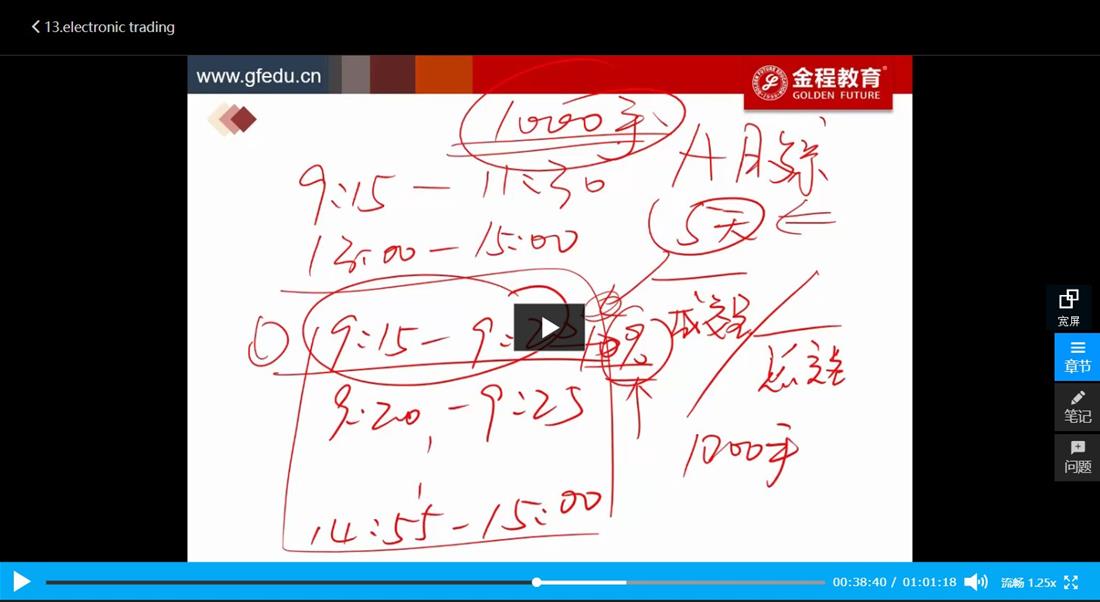 13.electronic trading
www.gfedu.cn
金程教育
GOLDEN FUTURE
1000手
9:15 — 11:30
13:00 — 15:00
5天
① 9:15 — 9:20
9:20 — 9:25
14:55 — 15:00
成交量
1000手
宽屏
章节
笔记
问题
00:38:40 / 01:01:18
流畅 1.25x